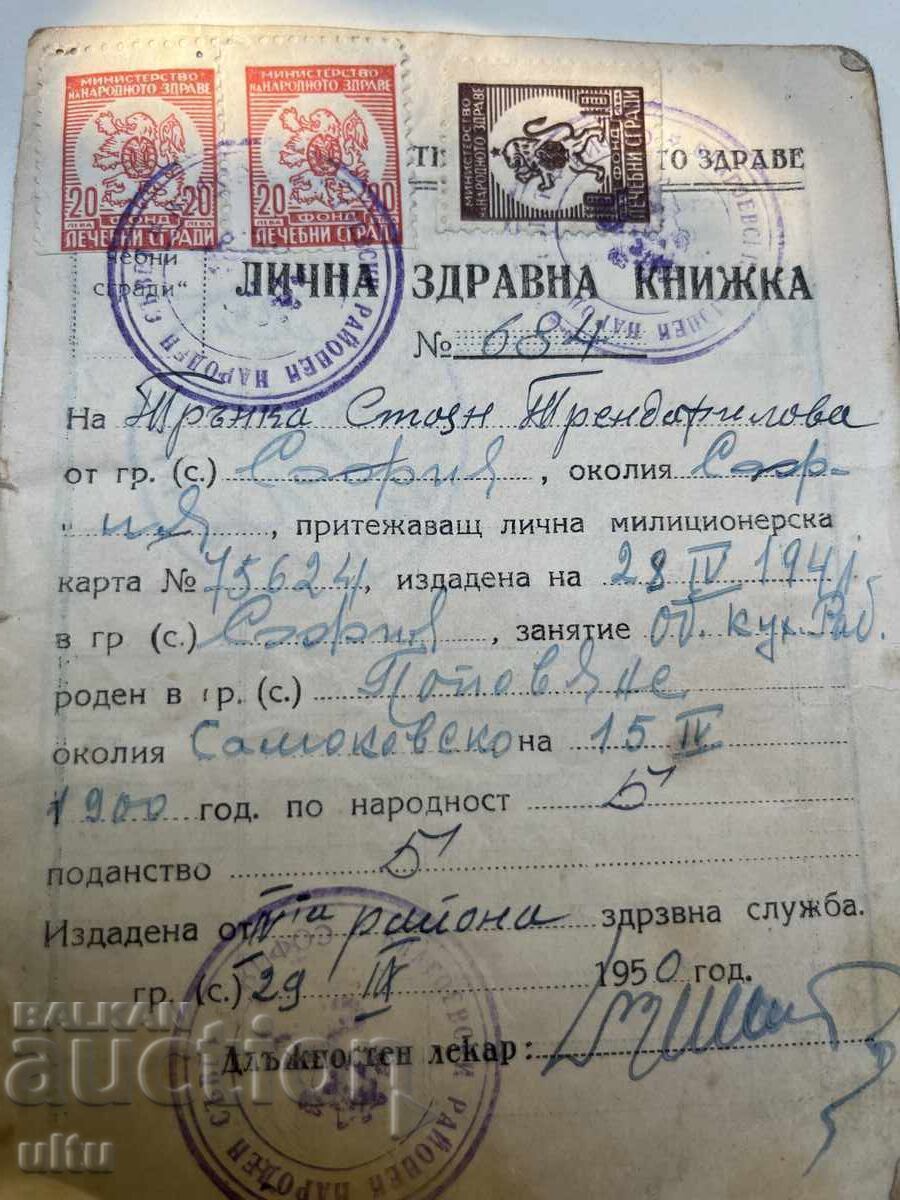 МИНИСТЕРСТВО
НА НАРОДНОТО ЗДРАВЕ
20 20
ЛЕВА ЛЕВА
ФОНД
ЛЕЧЕБНИ СГРАДИ
МИНИСТЕРСТВО
НА НАРОДНОТО ЗДРАВЕ
20 20
ЛЕВА
ФОНД
ЛЕЧЕБНИ СГРАДИ
МИНИСТЕРСТВО
НА НАРОДНОТО ЗДРАВЕ
ФОНД
ЛЕЧЕБНИ СГРАДИ
ТО ЗДРАВЕ
чебни
сгради"
ЛИЧНА ЗДРАВНА КНИЖКА
№ 684
На Трънка Стоян Трендафилова
от гр. (с.) София, околия Соф-
ия, притежаващ лична милиционерска
карта № 75624, издадена на 28 IV 1941
в гр (с.) София, занятие Об. кух. Раб.
роден в гр. (с.) Поповяне
околия Самоковско на 15 IV
1900 год. по народност Б
поданство Б
Издадена от районa здрзвна служба.
гр. (с.) 29 IX 1950 год.
Длъжностен лекар:
РАЙОНЕН НАРОДЕН СЪВЕТ
РАЙОНЕН НАРОДЕН СЪВЕТ
СОФИЯ
BALKAN
auction
ulftu